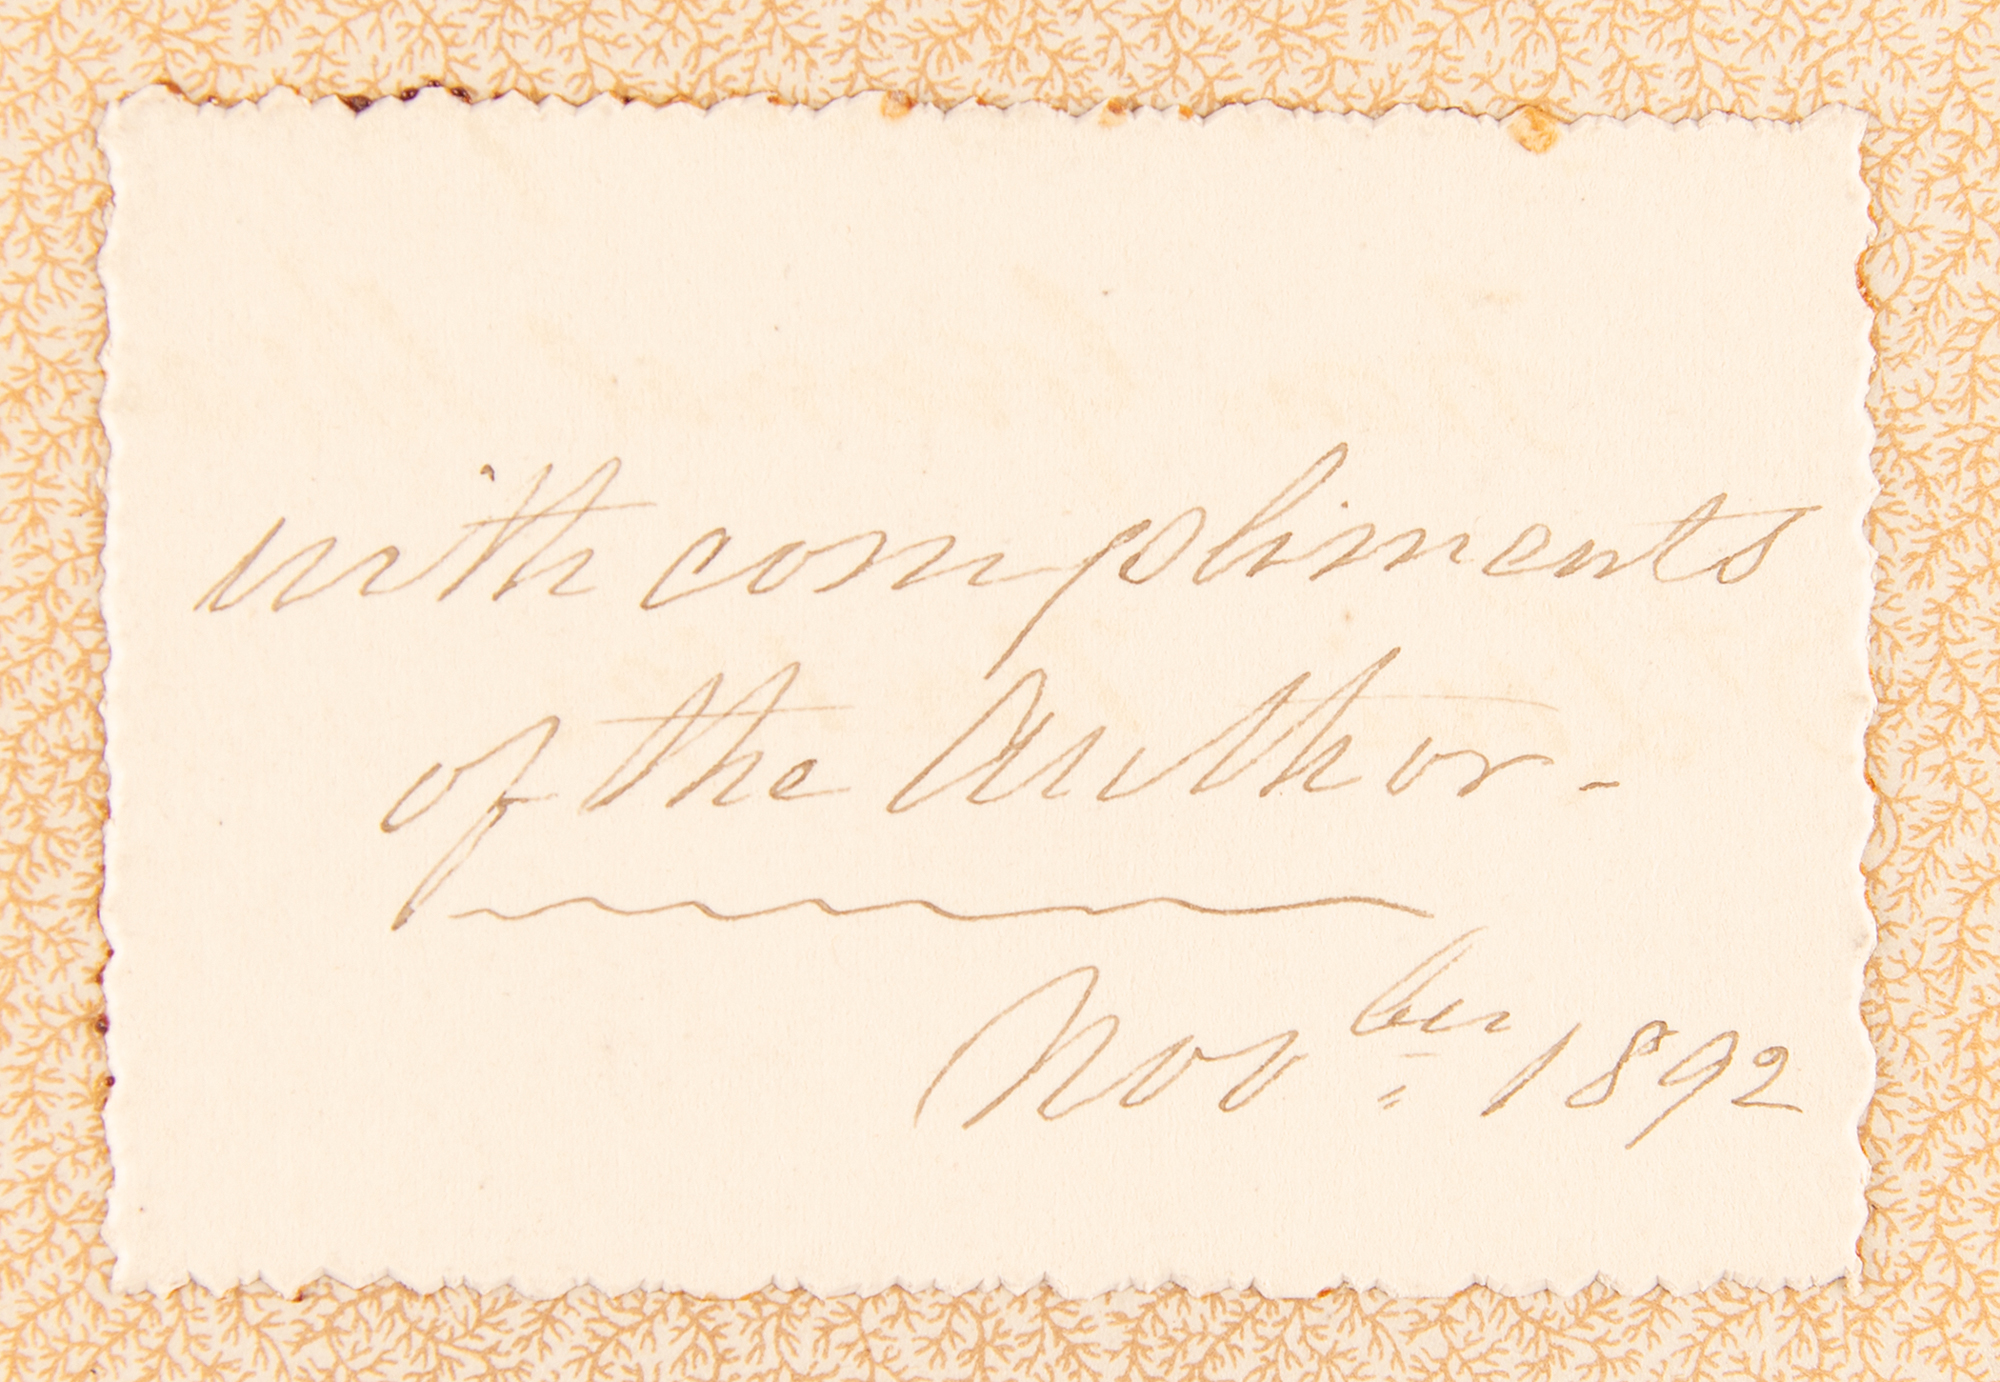 with compliments
of the Author -
Nov ber 1892